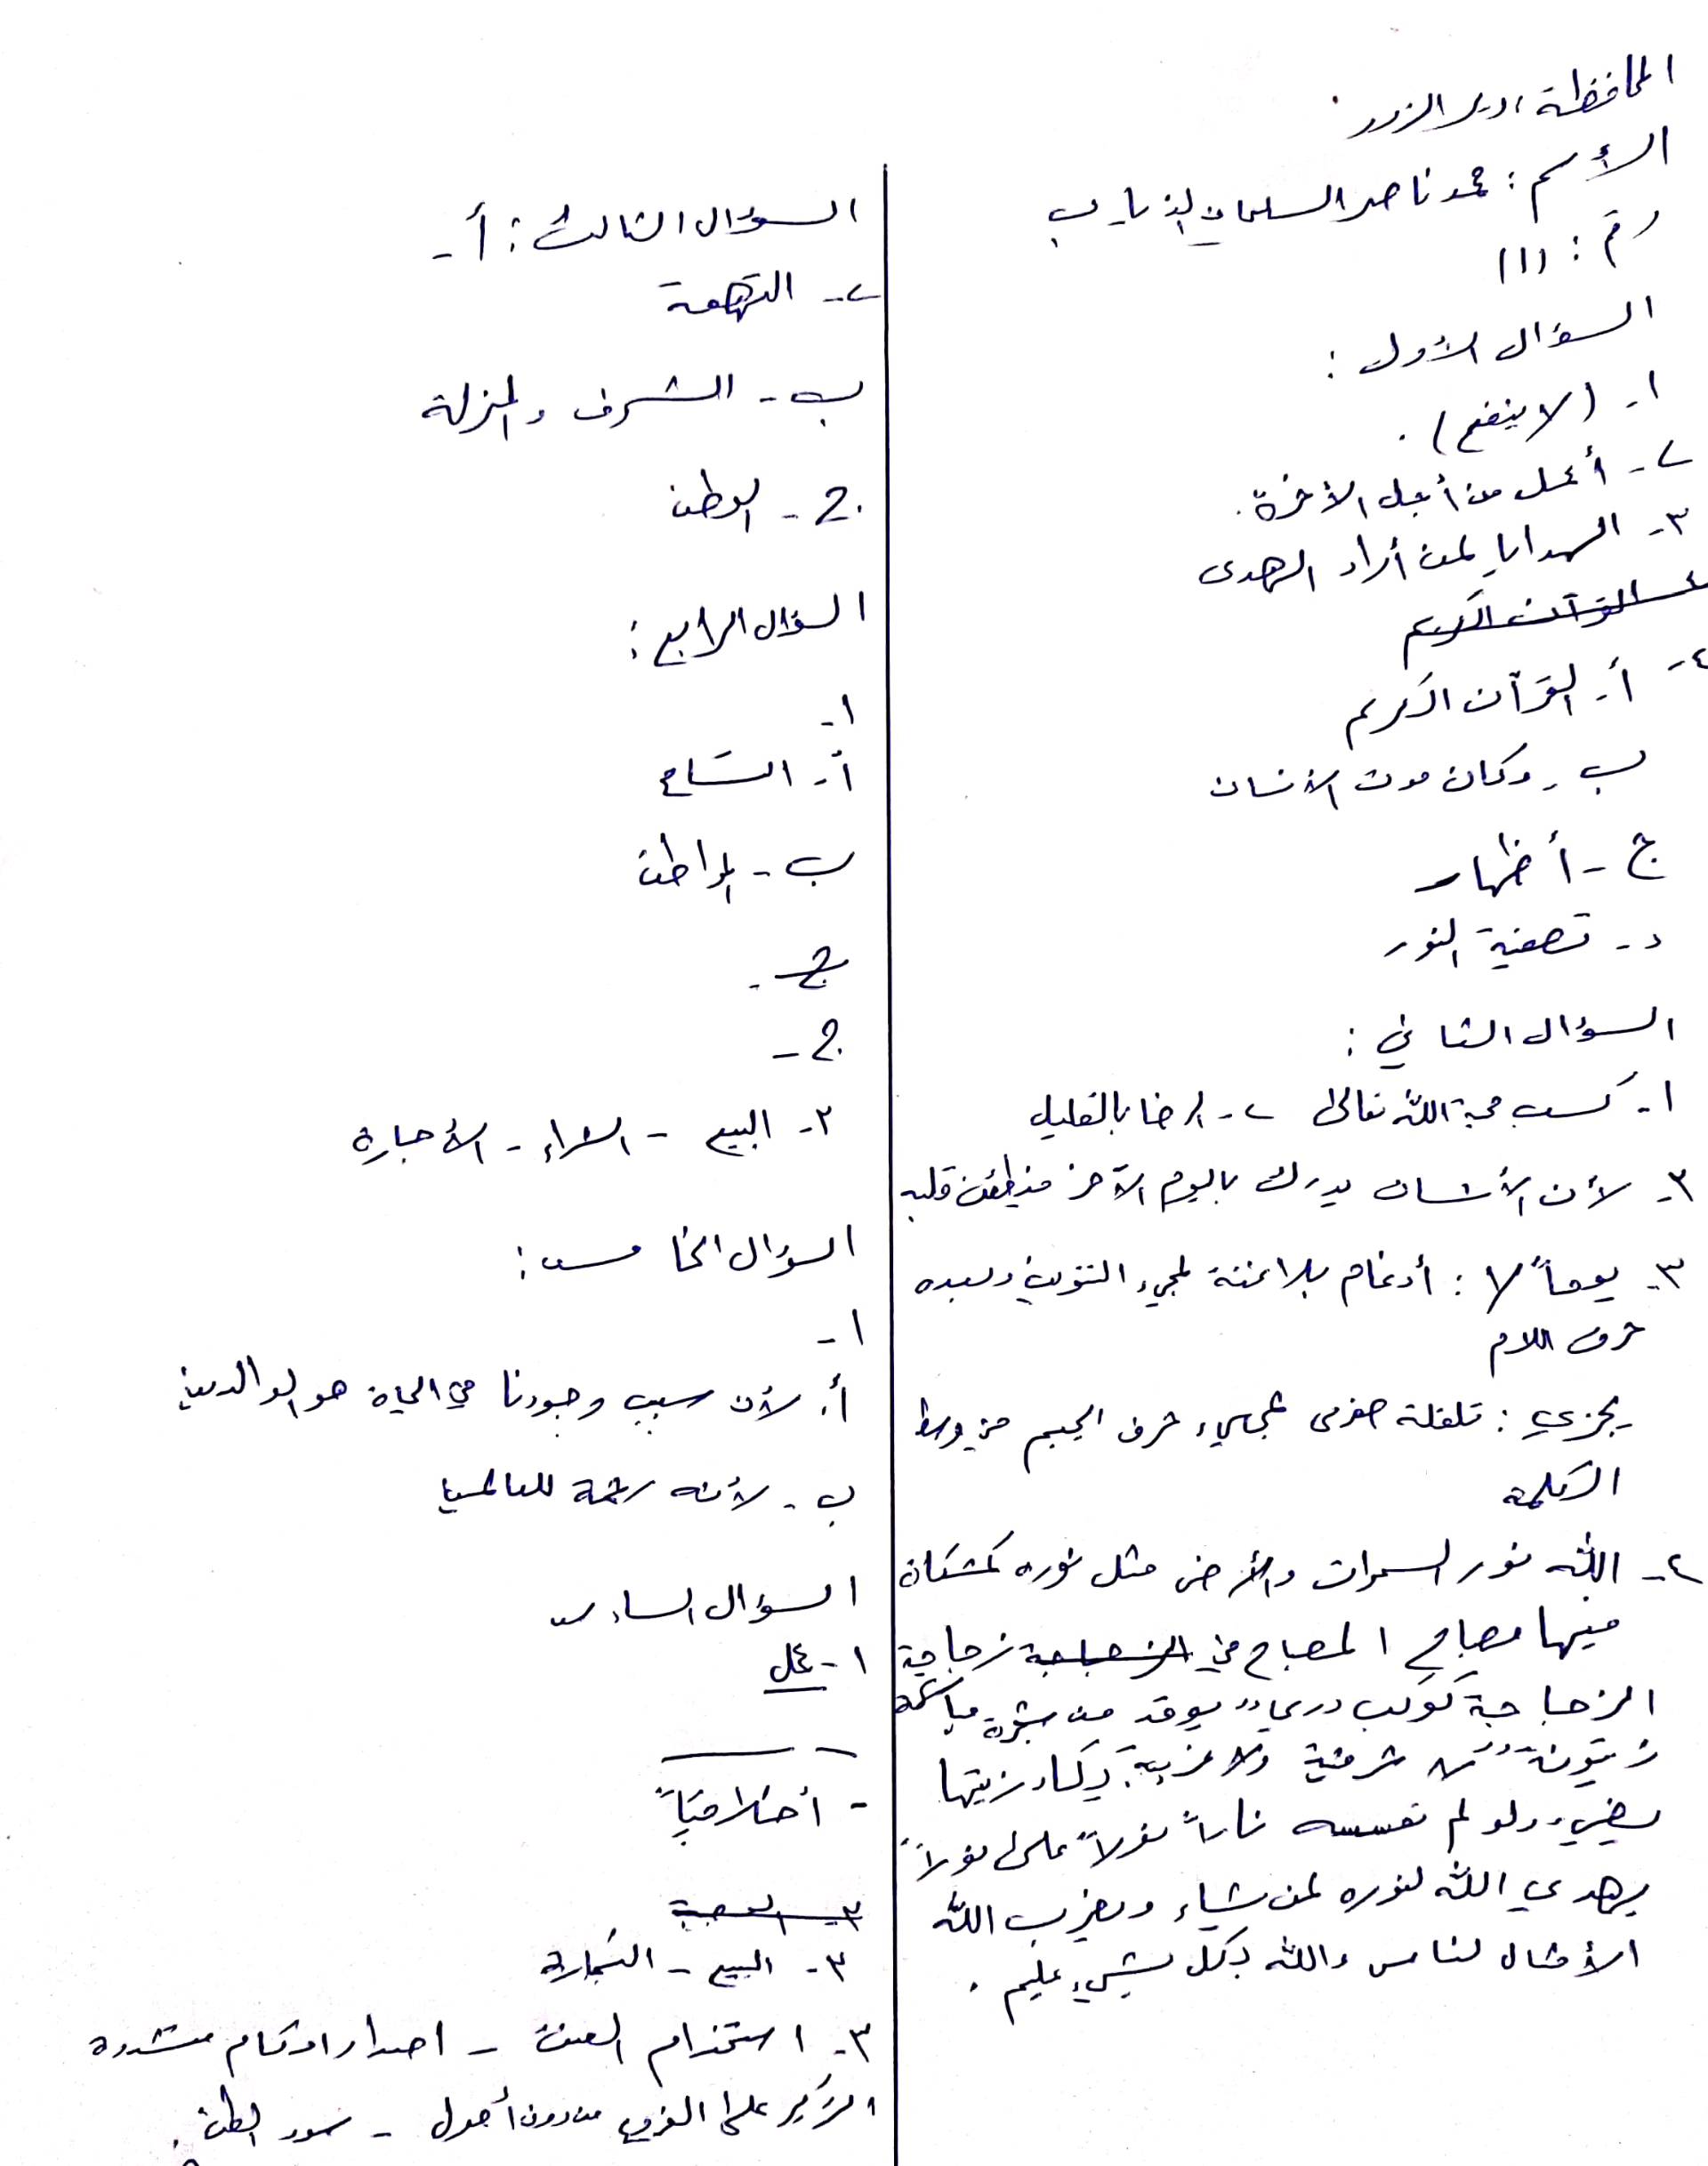 المحافظة: دير الزور.
الأسم: محمد ناصر السلمان الذياب
رقم: (١)
السؤال الأول:
١- (لا ينفع).
٢- أعمل من أجل الأخرة.
٣- الهدايا لمن أراد الهدى
٤- القرآن الكريم
٤-
أ- القرآن الكريم
ب- وكان موت الأنسان
ج - أظهار
د- تصفية النور
السؤال الثاني:
١- كسب محبة الله تعالى ٢- الرضا بالقليل
٣- لأن الأنسان يدرك باليوم الآخر فيطمئن قلبه
٣- يوماً لا: أدغام بلا غنة لمجيء التنوين وبعده
حرف اللام
يجزي: قلقلة صغرى لمجيء حرف الجيم في وسط
الكلمة
٤- الله نور السموات والأرض مثل نوره كمشكاة
فيها مصباح المصباح في الزجاجة زجاجة
الزجاجة كوكب دري يوقد من شجرة مباركة
زيتونة لا شرقية ولا غربية يكاد زيتها
يضيء ولو لم تمسسه ناراً نوراً على نوراً
يهدي الله لنوره لمن يشاء ويضرب الله
الأمثال لناس والله بكل شيء عليم.
السؤال الثالث: أ-
٢- التهمة
ب- الشرف والمنزلة
2- الوطن
السؤال الرابع:
١-
أ- التسامح
ب- المواطن
ج-
2-
٢- البيع - الشراء - الأجارة
السؤال الخامس:
١-
أ. لأن سبب وجودنا في الحياة هو الوالدين
ب- لأنه رحمة للعالمين
السؤال السادس
١- عمل
- أخلاقياً
٣-
٣- البيع - التجارة
٣- استخدام العنف - اصدار احكام متشددة
التركيز على الفروع من دون أصول - سوء الظن.